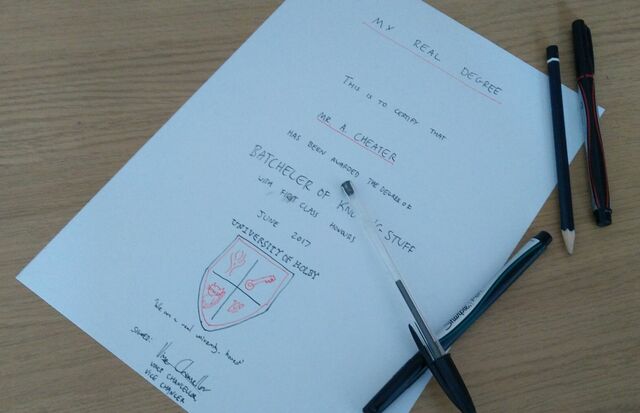 MY REAL DEGREE
THIS IS TO CERTIFY THAT
MR. A. CHEATER
HAS BEEN AWARDED THE DEGREE OF
BATCHELER OF STUFF
WITH FIRST CLASS
JUNE 2017
UNIVERSITY OF
We are a real university, honest
SIGNED:
CHANCELLOR
VICE
Sharpie